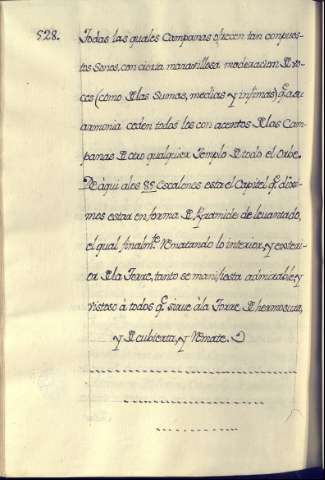 528. Todas las quales Campanas ofrecen tan conpues-
tos Sones, con cierta maravillosa moderacion D vo-
ces (como D las Sumas, medias y infimas) q̃ a su
armonia ceden todos los con acentos D las Cam-
panas D otro qualquier Templo D todo el Orbe.
De àqui a los 85 Escalones esta el Capitel q̃ dixi-
mos estar en forma D Piramide de levantado,
el qual finalmte Rematando lo interior, y exteri-
or D la Torre, tanto se manifiesta admirable, y
vistoso à todos q̃ sirve à la Torre D hermosura,
y D cubierta, y Remate.